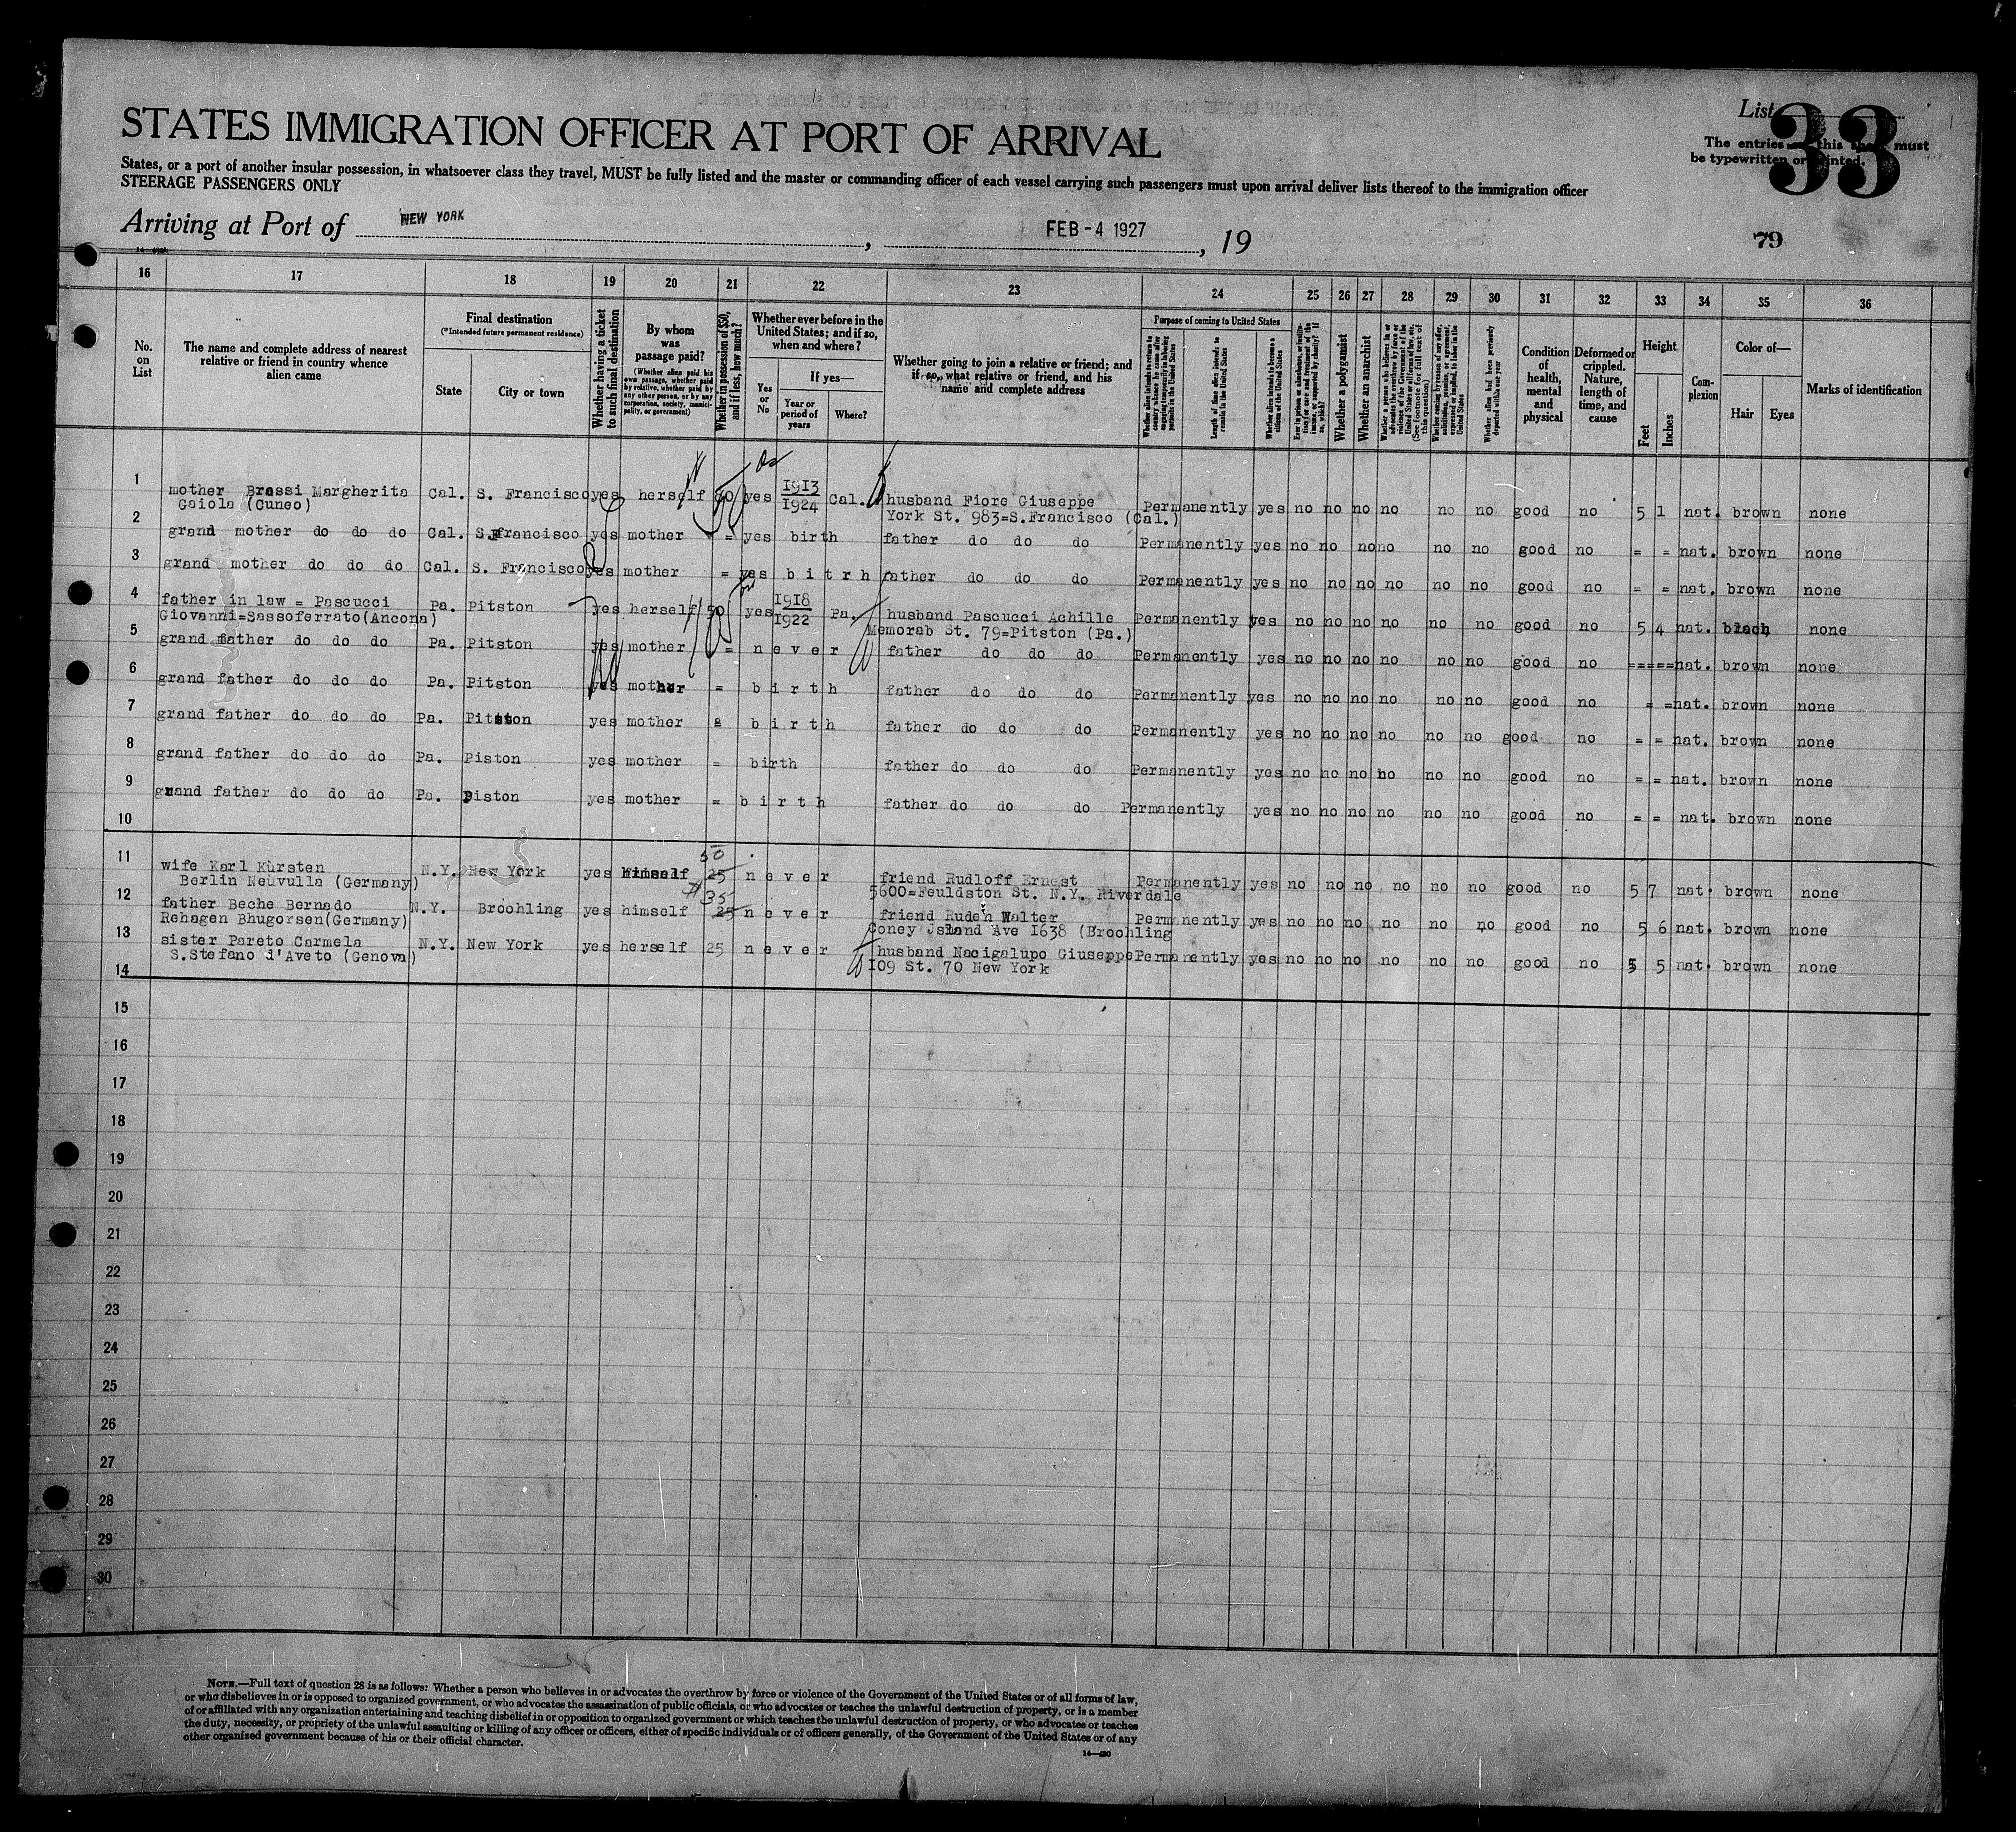 STATES IMMIGRATION OFFICER AT PORT OF ARRIVAL
List
33
The entries this must
be typewritten or printed.
States, or a port of another insular possession, in whatsoever class they travel, MUST be fully listed and the master or commanding officer of each vessel carrying such passengers must upon arrival deliver lists thereof to the immigration officer
STEERAGE PASSENGERS ONLY
Arriving at Port of NEW YORK , FEB - 4 1927 , 19
79
16 17 18 19 20 21 22 23 24 25 26 27 28 29 30 31 32 33 34 35 36
No. on List
The name and complete address of nearest relative or friend in country whence alien came
Final destination
(*Intended future permanent residence)
State
City or town
Whether having a ticket to such final destination
By whom was passage paid?
(Whether alien paid his own passage, whether paid by relative, whether paid by any other person, or by any corporation, society, municipality, or government)
Whether in possession of $50, and if less, how much?
Whether ever before in the United States; and if so, when and where?
Yes or No
If yes—
Year or period of years
Where?
Whether going to join a relative or friend; and if so, what relative or friend, and his name and complete address
Purpose of coming to United States
Length of time alien intends to remain in the United States
Whether alien intends to become a citizen of the United States
Whether a polygamist
Whether an anarchist
Condition of health, mental and physical
Deformed or crippled. Nature, length of time, and cause
Height
Feet
Inches
Complexion
Color of—
Hair
Eyes
Marks of identification
1 mother Bressi Margherita Cal. S. Francisco yes herself 50 yes 1913 1924 Cal. husband Fiore Giuseppe Permanently yes no no no no no no good no 5 1 nat. brown none
Gaiola (Cuneo) York St. 983=S.Francisco (Cal.)
2 grand mother do do do Cal. S.Francisco yes mother = yes birth father do do do Permanently yes no no no no no no good no = = nat. brown none
3 grand mother do do do Cal. S. Francisco yes mother = yes b i t r h father do do do Permanently yes no no no no no no good no = = nat. brown none
4 father in law = Pascucci Pa. Pitston yes herself 50 yes 1918 1922 Pa. husband Pascucci Achille Permanently yes no no no no no no good no 5 4 nat. black none
Giovanni=Sassoferrato(Ancona) Memorab St. 79=Pitston (Pa.)
5 grand father do do do Pa. Pitston yes mother = n e v e r father do do do Permanently yes no no no no no no good no =====nat. brown none
6 grand father do do do Pa. Pitston yes mother = b i r t h father do do do Permanently yes no no no no no no good no = =nat. brown none
7 grand father do do do Pa. Pitston yes mother = b i r t h father do do do Permanently yes no no no no no no good no = = nat. brown none
8 grand father do do do Pa. Piston yes mother = birth father do do do Permanently yes no no no no no no good no = = nat. brown none
9 grand father do do do Pa. Piston yes mother = b i r t h father do do do Permanently yes no no no no no no good no = = nat. brown none
10
11 wife Karl Kürsten N.Y. New York yes himself 25 50 n e v e r friend Rudloff Ernest Permanently yes no no no no no no good no 5 7 nat. brown none
Berlin Neuvulla (Germany) 5600=Feuldston St. N.Y. Riverdale
12 father Beche Bernado N.Y. Broohling yes himself 25 35 n e v e r friend Ruden Walter Permanently yes no no no no no no good no 5 6 nat. brown none
Rehagen Bhugorsen(Germany) Coney Island Ave 1638 (Broohling
13 sister Pareto Carmela N.Y. New York yes herself 25 n e v e r husband Nacigalupo Giuseppe Permanently yes no no no no no no good no 5 5 nat. brown none
S.Stefano d'Aveto (Genova) 109 St. 70 New York
14
15
16
17
18
19
20
21
22
23
24
25
26
27
28
29
30
NOTE.—Full text of question 28 is as follows: Whether a person who believes in or advocates the overthrow by force or violence of the Government of the United States or of all forms of law,
or who disbelieves in or is opposed to organized government, or who advocates the assassination of public officials, or who advocates or teaches the unlawful destruction of property, or is a member
of or affiliated with any organization entertaining and teaching disbelief in or opposition to organized government or which teaches the unlawful destruction of property, or who advocates or teaches
the duty, necessity, or propriety of the unlawful assaulting or killing of any officer or officers, either of specific individuals or of officers generally, of the Government of the United States or of any
other organized government because of his or their official character.
14—490